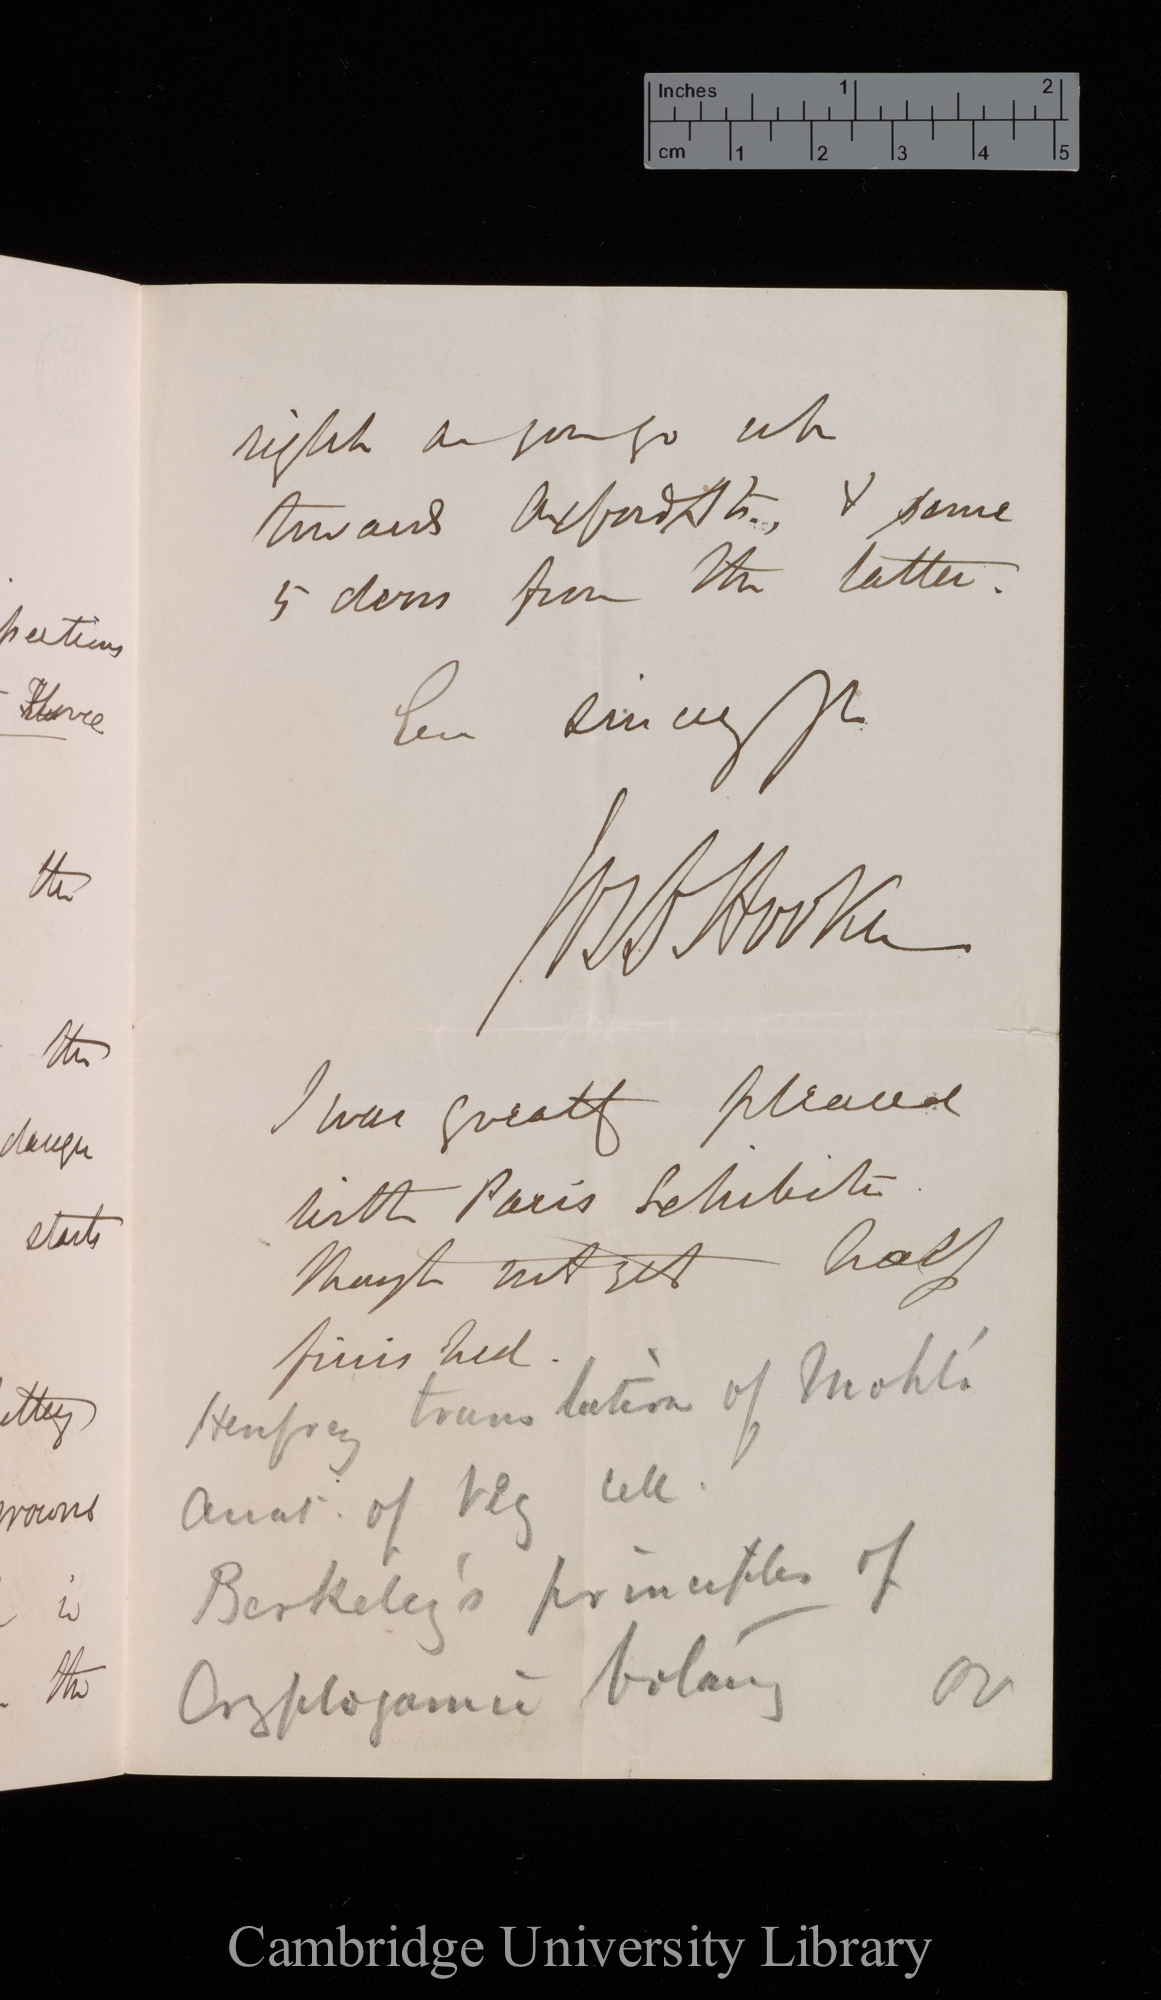 Inches 1 2
cm 1 2 3 4 5
pections
Howe
the
the
danger
starts
grows
is
the
right as you go up
towards Oxford St., & some
5 doors from the latter.
Ever sincerely yrs
Jos D Hooker
I was greatly pleased
with Paris Exhibitn
though not yet half
finished.
Henfrey translation of Mohl's
Anat. of Veg cell.
Berkeley's principles of
Cryptogamic botany or
Cambridge University Library